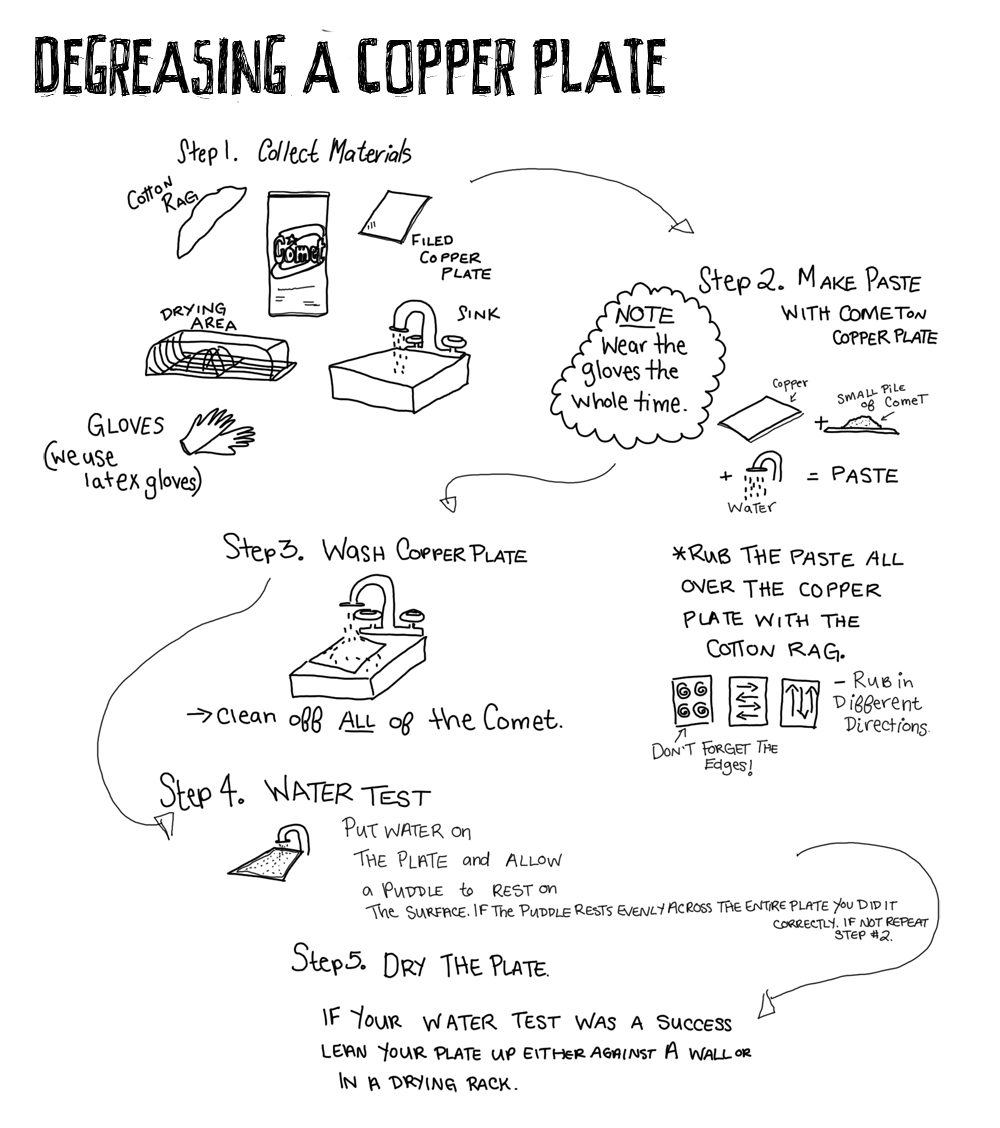 DEGREASING A COPPER PLATE
Step 1. Collect Materials
COTTON
RAG
Comet
FILED
COPPER
PLATE
DRYING
AREA
SINK
GLOVES
(we use
latex gloves)
Step 2. MAKE PASTE
WITH COMET ON
COPPER PLATE
NOTE
Wear the
gloves the
whole time.
Copper
+
SMALL PILE
of COMET
+
WATER
= PASTE
*RUB THE PASTE ALL
OVER THE COPPER
PLATE WITH THE
COTTON RAG.
- RUB in
Different
Directions.
DON'T FORGET THE
Edges!
Step 3. WASH COPPER PLATE
→ Clean off ALL of the Comet.
Step 4. WATER TEST
PUT WATER on
THE PLATE and ALLOW
a PUDDLE to REST on
The SURFACE. IF THE PUDDLE RESTS EVENLY ACROSS THE ENTIRE PLATE YOU DID IT
CORRECTLY. IF NOT REPEAT
STEP #2.
Step 5. DRY THE PLATE.
IF YOUR WATER TEST WAS A SUCCESS
LEAN YOUR PLATE UP EITHER AGAINST A WALL OR
IN A DRYING RACK.